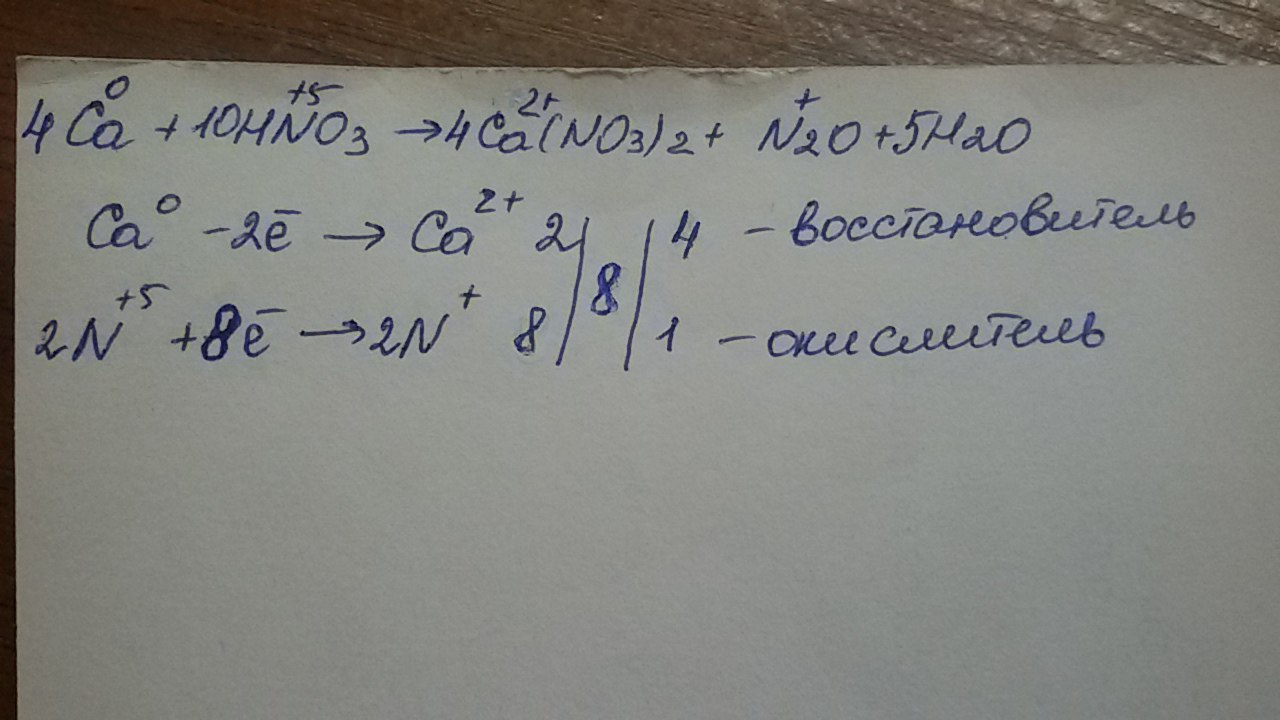 4Ca⁰ + 10HN⁺⁵O₃ → 4Ca²⁺(NO₃)₂ + N⁺₂O + 5H₂O
Ca⁰ - 2ē → Ca²⁺ 2 | 8 | 4 - восстановитель
2N⁺⁵ + 8ē → 2N⁺ 8 | | 1 - окислитель